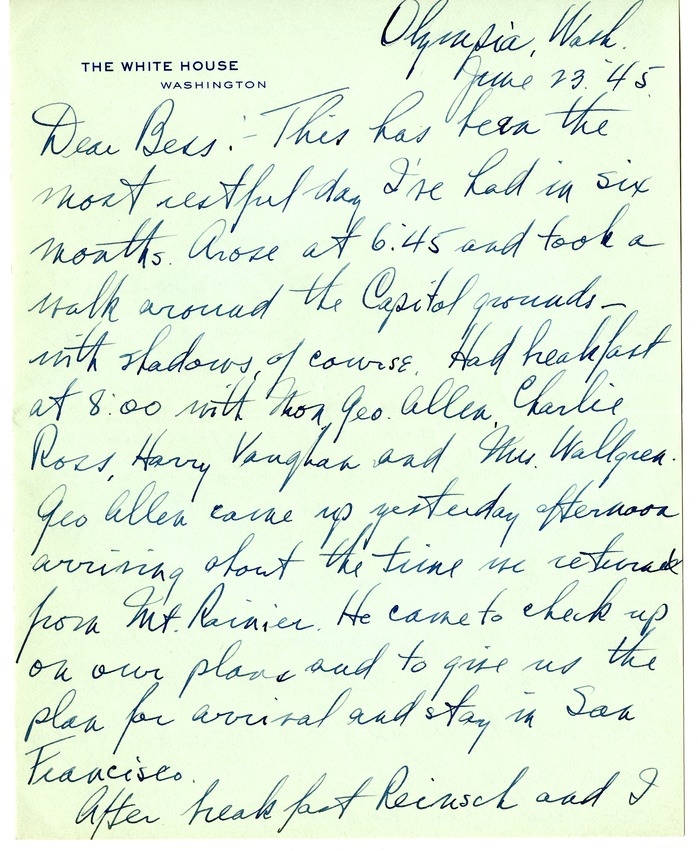 Olympia, Wash.
June 23, '45
THE WHITE HOUSE
WASHINGTON
Dear Bess:- This has been the
most restful day I've had in six
months. Arose at 6:45 and took a
walk around the Capitol grounds—
with shadows, of course. Had breakfast
at 8:00 with Mon, Geo. Allen, Charlie
Ross, Harry Vaughan and Mrs. Wallgren.
Geo Allen came up yesterday afternoon
arriving about the time we returned
from Mt. Rainier. He came to check up
on our plans and to give us the
plan for arrival and stay in San
Francisco.
After breakfast Reinsch and I